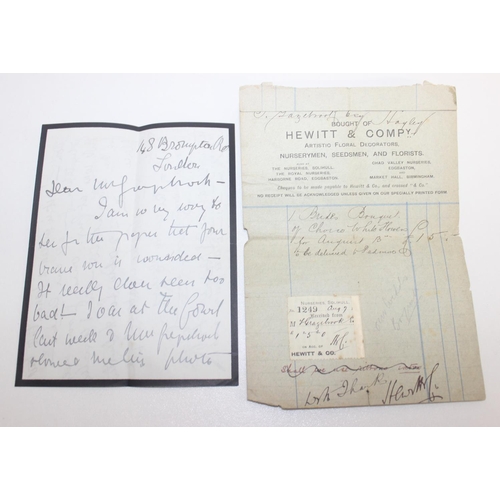 148 Brompton Rd
London
Dear Mr Grazebrook –
I am so very sorry to
see in the paper that your
brave son is wounded –
It really does seem too
bad – I was at the Court
last week & Mrs Grazebrook
showed me his photo
Grazebrook Esq
Hagley
BOUGHT OF
HEWITT & COMPY
ARTISTIC FLORAL DECORATORS,
NURSERYMEN, SEEDSMEN, AND FLORISTS.
THE NURSERIES, SOLIHULL.
THE ROYAL NURSERIES,
HARBORNE ROAD, EDGBASTON.
CHAD VALLEY NURSERIES,
EDGBASTON,
AND
MARKET HALL, BIRMINGHAM.
Cheques to be made payable to Hewitt & Co., and crossed "& Co."
NO RECEIPT WILL BE ACKNOWLEDGED UNLESS GIVEN ON OUR SPECIALLY PRINTED FORM
1 Bridal Bouquet
of Choice White Flowers
for August
to be delivered
1 5
1249 Aug 7
Grazebrook
1" 5" 0
HEWITT & CO.
with Thanks
Hewitt & Co